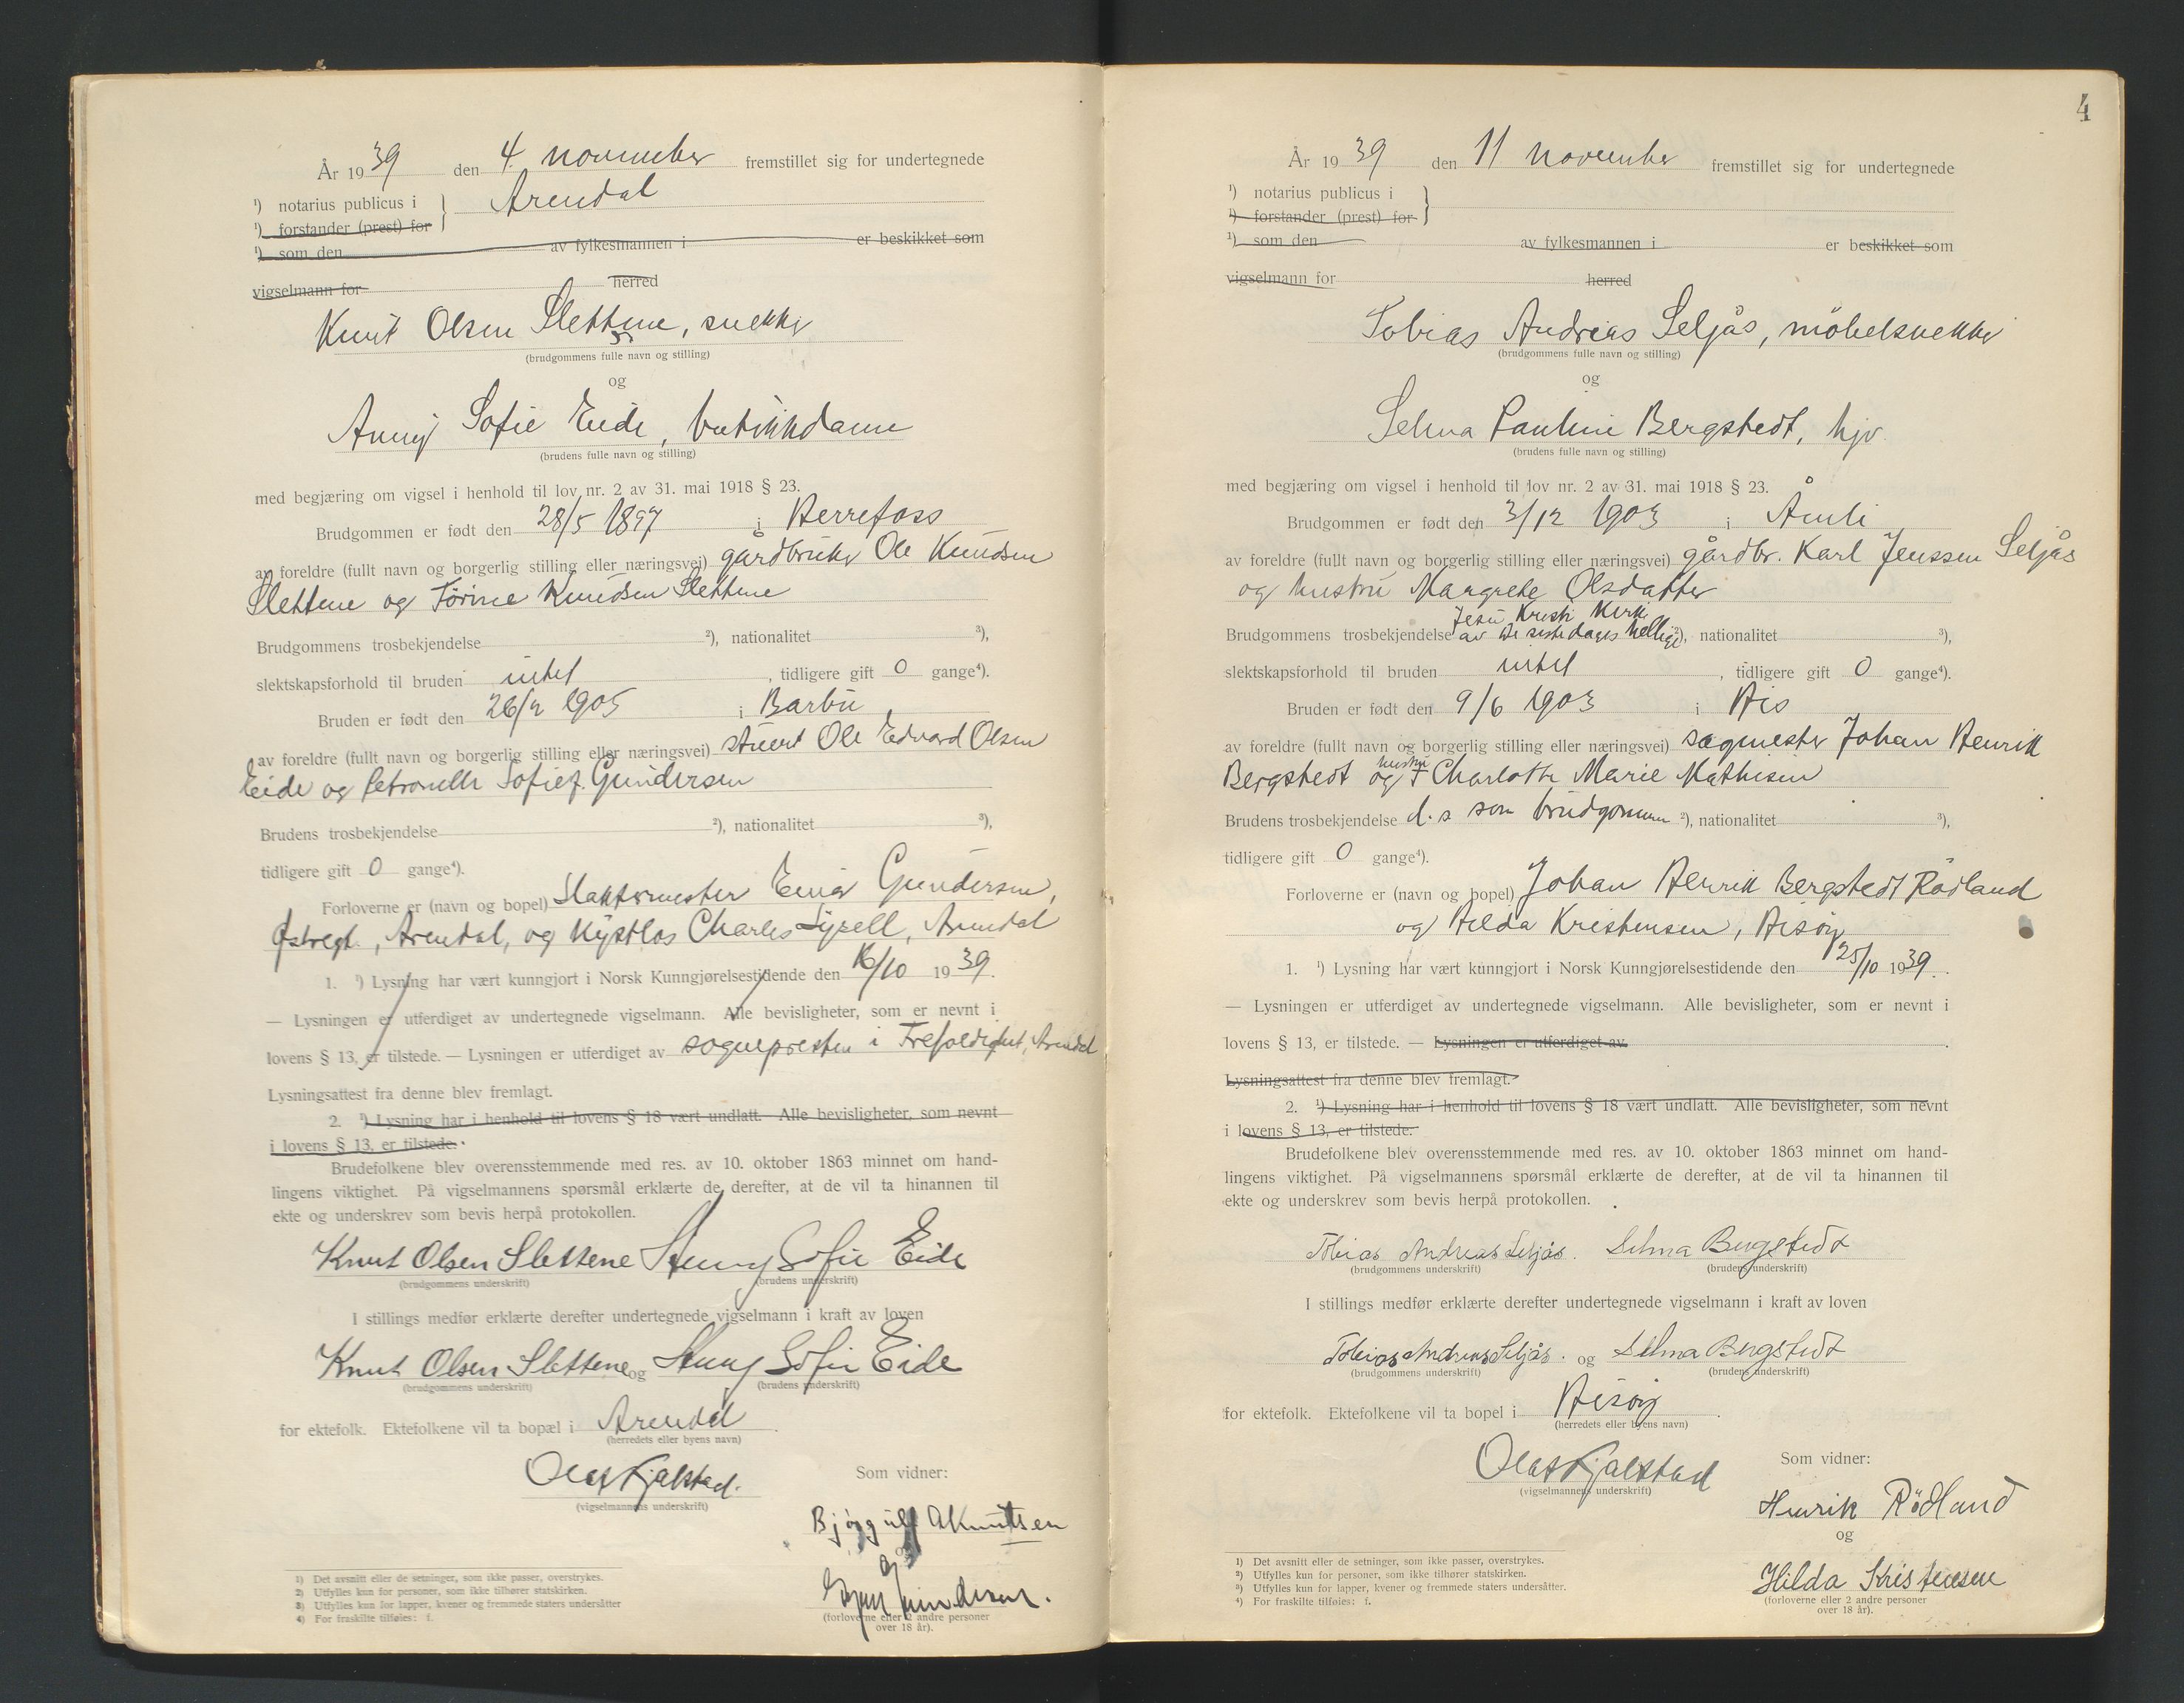 År 1939 den 4. november fremstillet sig for undertegnede
¹) notarius publicus i Arendal
¹) forstander (prest) for
¹) som den av fylkesmannen i er beskikket som
vigselmann for herred
Knut Olsen Slettene, snekker
(brudgommens fulle navn og stilling)
og
Anny Sofie Eide, butikkdame
(brudens fulle navn og stilling)
med begjæring om vigsel i henhold til lov nr. 2 av 31. mai 1918 § 23.
Brudgommen er født den 28/5 1897 i Herrefoss
av foreldre (fullt navn og borgerlig stilling eller næringsvei) gårdbruker Ole Knudsen
Slettene og Tørine Knudsen Slettene
Brudgommens trosbekjendelse ²), nationalitet ³),
slektskapsforhold til bruden intet, tidligere gift 0 gange⁴).
Bruden er født den 26/2 1905 i Barbu,
av foreldre (fullt navn og borgerlig stilling eller næringsvei) stuert Ole Edvard Olsen
Eide og Petronelle Sofie f. Gundersen
Brudens trosbekjendelse ²), nationalitet ³),
tidligere gift 0 gange⁴).
Forloverne er (navn og bopel) Slaktermester Einar Gundersen,
Østregt., Arendal, og Charles Syrell, Arendal
1. ¹) Lysning har vært kunngjort i Norsk Kunngjørelsestidende den 16/10 1939.
— Lysningen er utferdiget av undertegnede vigselmann. Alle bevisligheter, som er nevnt i
lovens § 13, er tilstede. — Lysningen er utferdiget av sognepresten i Trefoldighet, Arendal
Lysningsattest fra denne blev fremlagt.
2. ¹) Lysning har i henhold til lovens § 18 vært undlatt. Alle bevisligheter, som nevnt
i lovens § 13, er tilstede.
Brudefolkene blev overensstemmende med res. av 10. oktober 1863 minnet om hand-
lingens viktighet. På vigselmannens spørsmål erklærte de derefter, at de vil ta hinannen til
ekte og underskrev som bevis herpå protokollen.
Knut Olsen Slettene Anny Sofie Eide
(brudgommens underskrift) (brudens underskrift)
I stillings medfør erklærte derefter undertegnede vigselmann i kraft av loven
Knut Olsen Slettene og Anny Sofie Eide
(brudgommens underskrift) (brudens underskrift)
for ektefolk. Ektefolkene vil ta bopæl i Arendal.
(herredets eller byens navn)
Olaf Fjalstad.
(vigselmannens underskrift)
Som vidner:
Bjørgulf AKnutsen
og
Gundersen.
(forloverne eller 2 andre personer
over 18 år).
1) Det avsnitt eller de setninger, som ikke passer, overstrykes.
2) Utfylles kun for personer, som ikke tilhører statskirken.
3) Utfylles kun for lapper, kvener og fremmede staters undersåtter
4) For fraskilte tilføies: f.
4
År 1939 den 11 november fremstillet sig for undertegnede
¹) notarius publicus i
¹) forstander (prest) for
¹) som den av fylkesmannen i er beskikket som
vigselmann for herred
Tobias Andreas Seljås, möbelsnekker
(brudgommens fulle navn og stilling)
og
Selma Pauline Bergstedt, hjv.
(brudens fulle navn og stilling)
med begjæring om vigsel i henhold til lov nr. 2 av 31. mai 1918 § 23.
Brudgommen er født den 3/12 1903 i Åmli,
av foreldre (fullt navn og borgerlig stilling eller næringsvei) gårdbr. Karl Jenssen Seljås
og hustru Margrete Olsdatter
Jesu Kristi Kirke
Brudgommens trosbekjendelse av de siste dages hellige ²), nationalitet ³),
slektskapsforhold til bruden intet, tidligere gift 0 gange⁴).
Bruden er født den 9/6 1903 i His
av foreldre (fullt navn og borgerlig stilling eller næringsvei) sagmester Johan Henrik
Bergstedt og hustru Charlotte Marie Mathisen
Brudens trosbekjendelse d.s som brudgommen ²), nationalitet ³),
tidligere gift 0 gange⁴).
Forloverne er (navn og bopel) Johan Henrik Bergstedt Rödland
og Hilda Kristensen, Hisøy
1. ¹) Lysning har vært kunngjort i Norsk Kunngjørelsestidende den 25/10 1939.
— Lysningen er utferdiget av undertegnede vigselmann. Alle bevisligheter, som er nevnt i
lovens § 13, er tilstede. — Lysningen er utferdiget av.
Lysningsattest fra denne blev fremlagt.
2. ¹) Lysning har i henhold til lovens § 18 vært undlatt. Alle bevisligheter, som nevnt
i lovens § 13, er tilstede.
Brudefolkene blev overensstemmende med res. av 10. oktober 1863 minnet om hand-
lingens viktighet. På vigselmannens spørsmål erklærte de derefter, at de vil ta hinannen til
ekte og underskrev som bevis herpå protokollen.
Tobias Andreas Seljås. Selma Bergstedt
(brudgommens underskrift) (brudens underskrift)
I stillings medfør erklærte derefter undertegnede vigselmann i kraft av loven
Tobias Andreas Seljås. og Selma Bergstedt
(brudgommens underskrift) (brudens underskrift)
for ektefolk. Ektefolkene vil ta bopel i Hisøy.
(herredets eller byens navn)
Olaf Fjalstad
(vigselmannens underskrift)
Som vidner:
Henrik Rödland
og
Hilda Kristensen
(forloverne eller 2 andre personer
over 18 år).
1) Det avsnitt eller de setninger, som ikke passer, overstrykes.
2) Utfylles kun for personer, som ikke tilhører statskirken.
3) Utfylles kun for lapper, kvener og fremmede staters undersåtter.
4) For fraskilte tilføies: f.